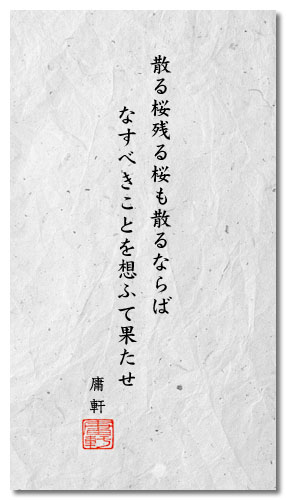 散る桜残る桜も散るならば
なすべきことを想ふて果たせ
庸軒
庸軒